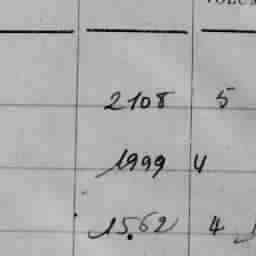 2108 5
1999 4
15.62 4